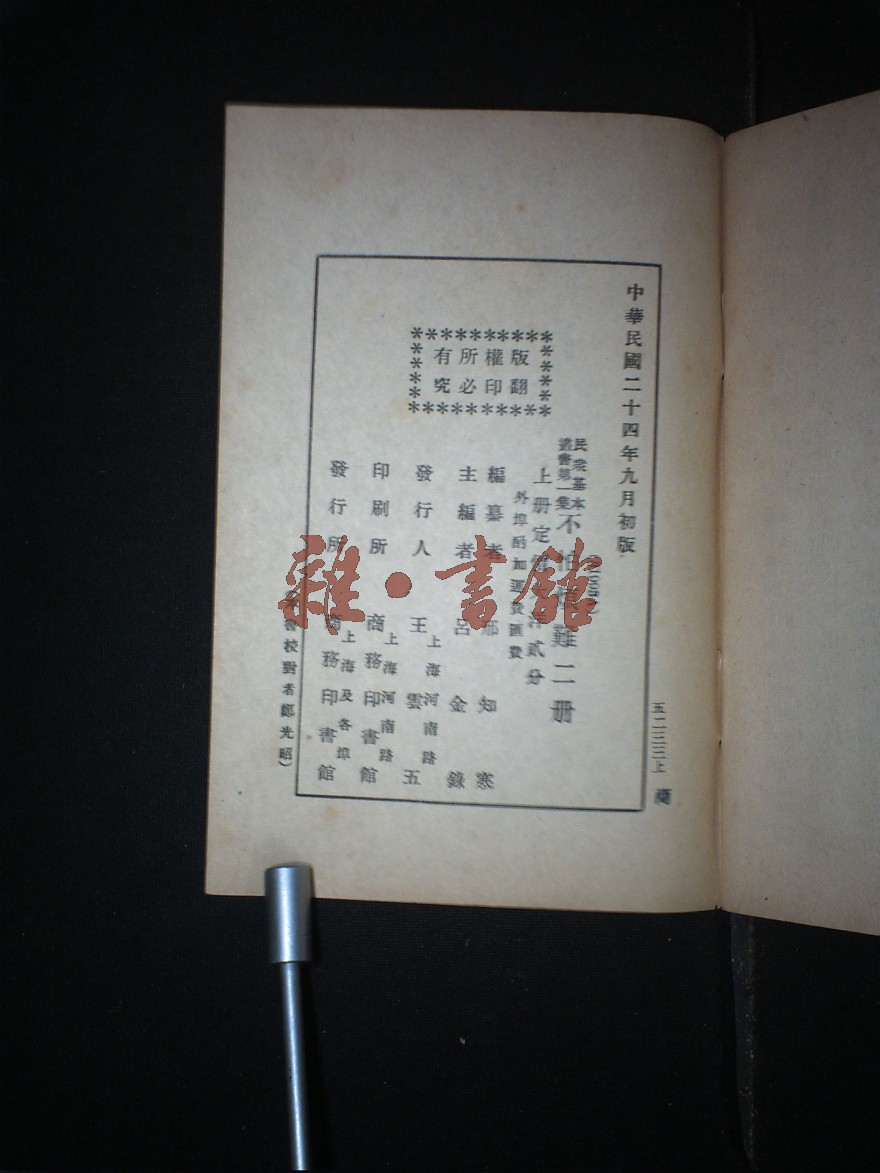 中華民國二十四年九月初版
版權所有
翻印必究
民衆基本
叢書第一集
不怕 難二册
上册定 貳分
外埠酌加運費匯費
編纂者 知寒
主編者 呂金錄
發行人 王雲五
上海河南路
印刷所 商務印書館
上海河南路
發行所 商務印書館
上海及各埠
書校對者鄭光昭)
五二三三上
雜·書館